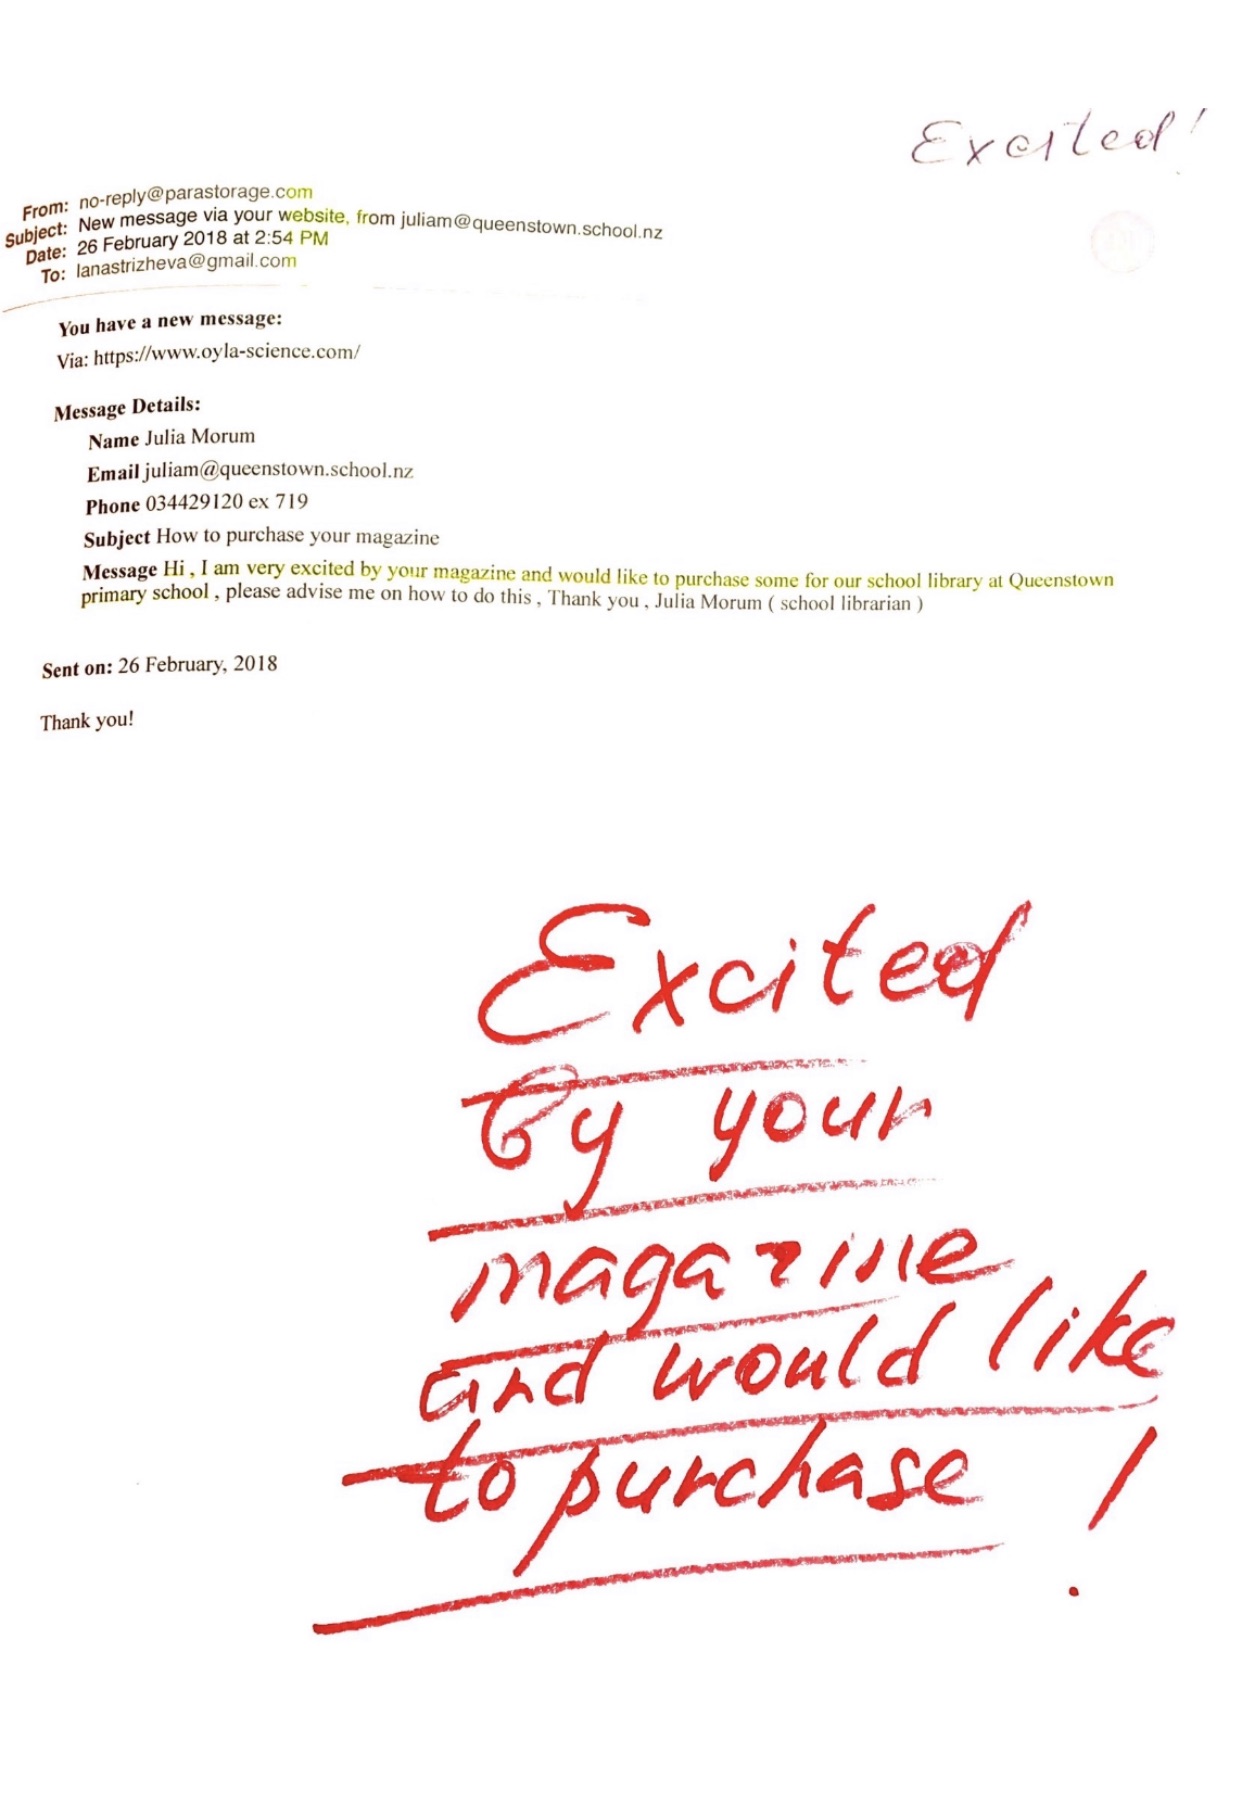 Excited!
From: no-reply@parastorage.com
Subject: New message via your website, from juliam@queenstown.school.nz
Date: 26 February 2018 at 2:54 PM
To: lanastrizheva@gmail.com
You have a new message:
Via: https://www.oyla-science.com/
Message Details:
Name Julia Morum
Email juliam@queenstown.school.nz
Phone 034429120 ex 719
Subject How to purchase your magazine
Message Hi , I am very excited by your magazine and would like to purchase some for our school library at Queenstown
primary school , please advise me on how to do this , Thank you , Julia Morum ( school librarian )
Sent on: 26 February, 2018
Thank you!
Excited
by your
magazine
and would like
to purchase !